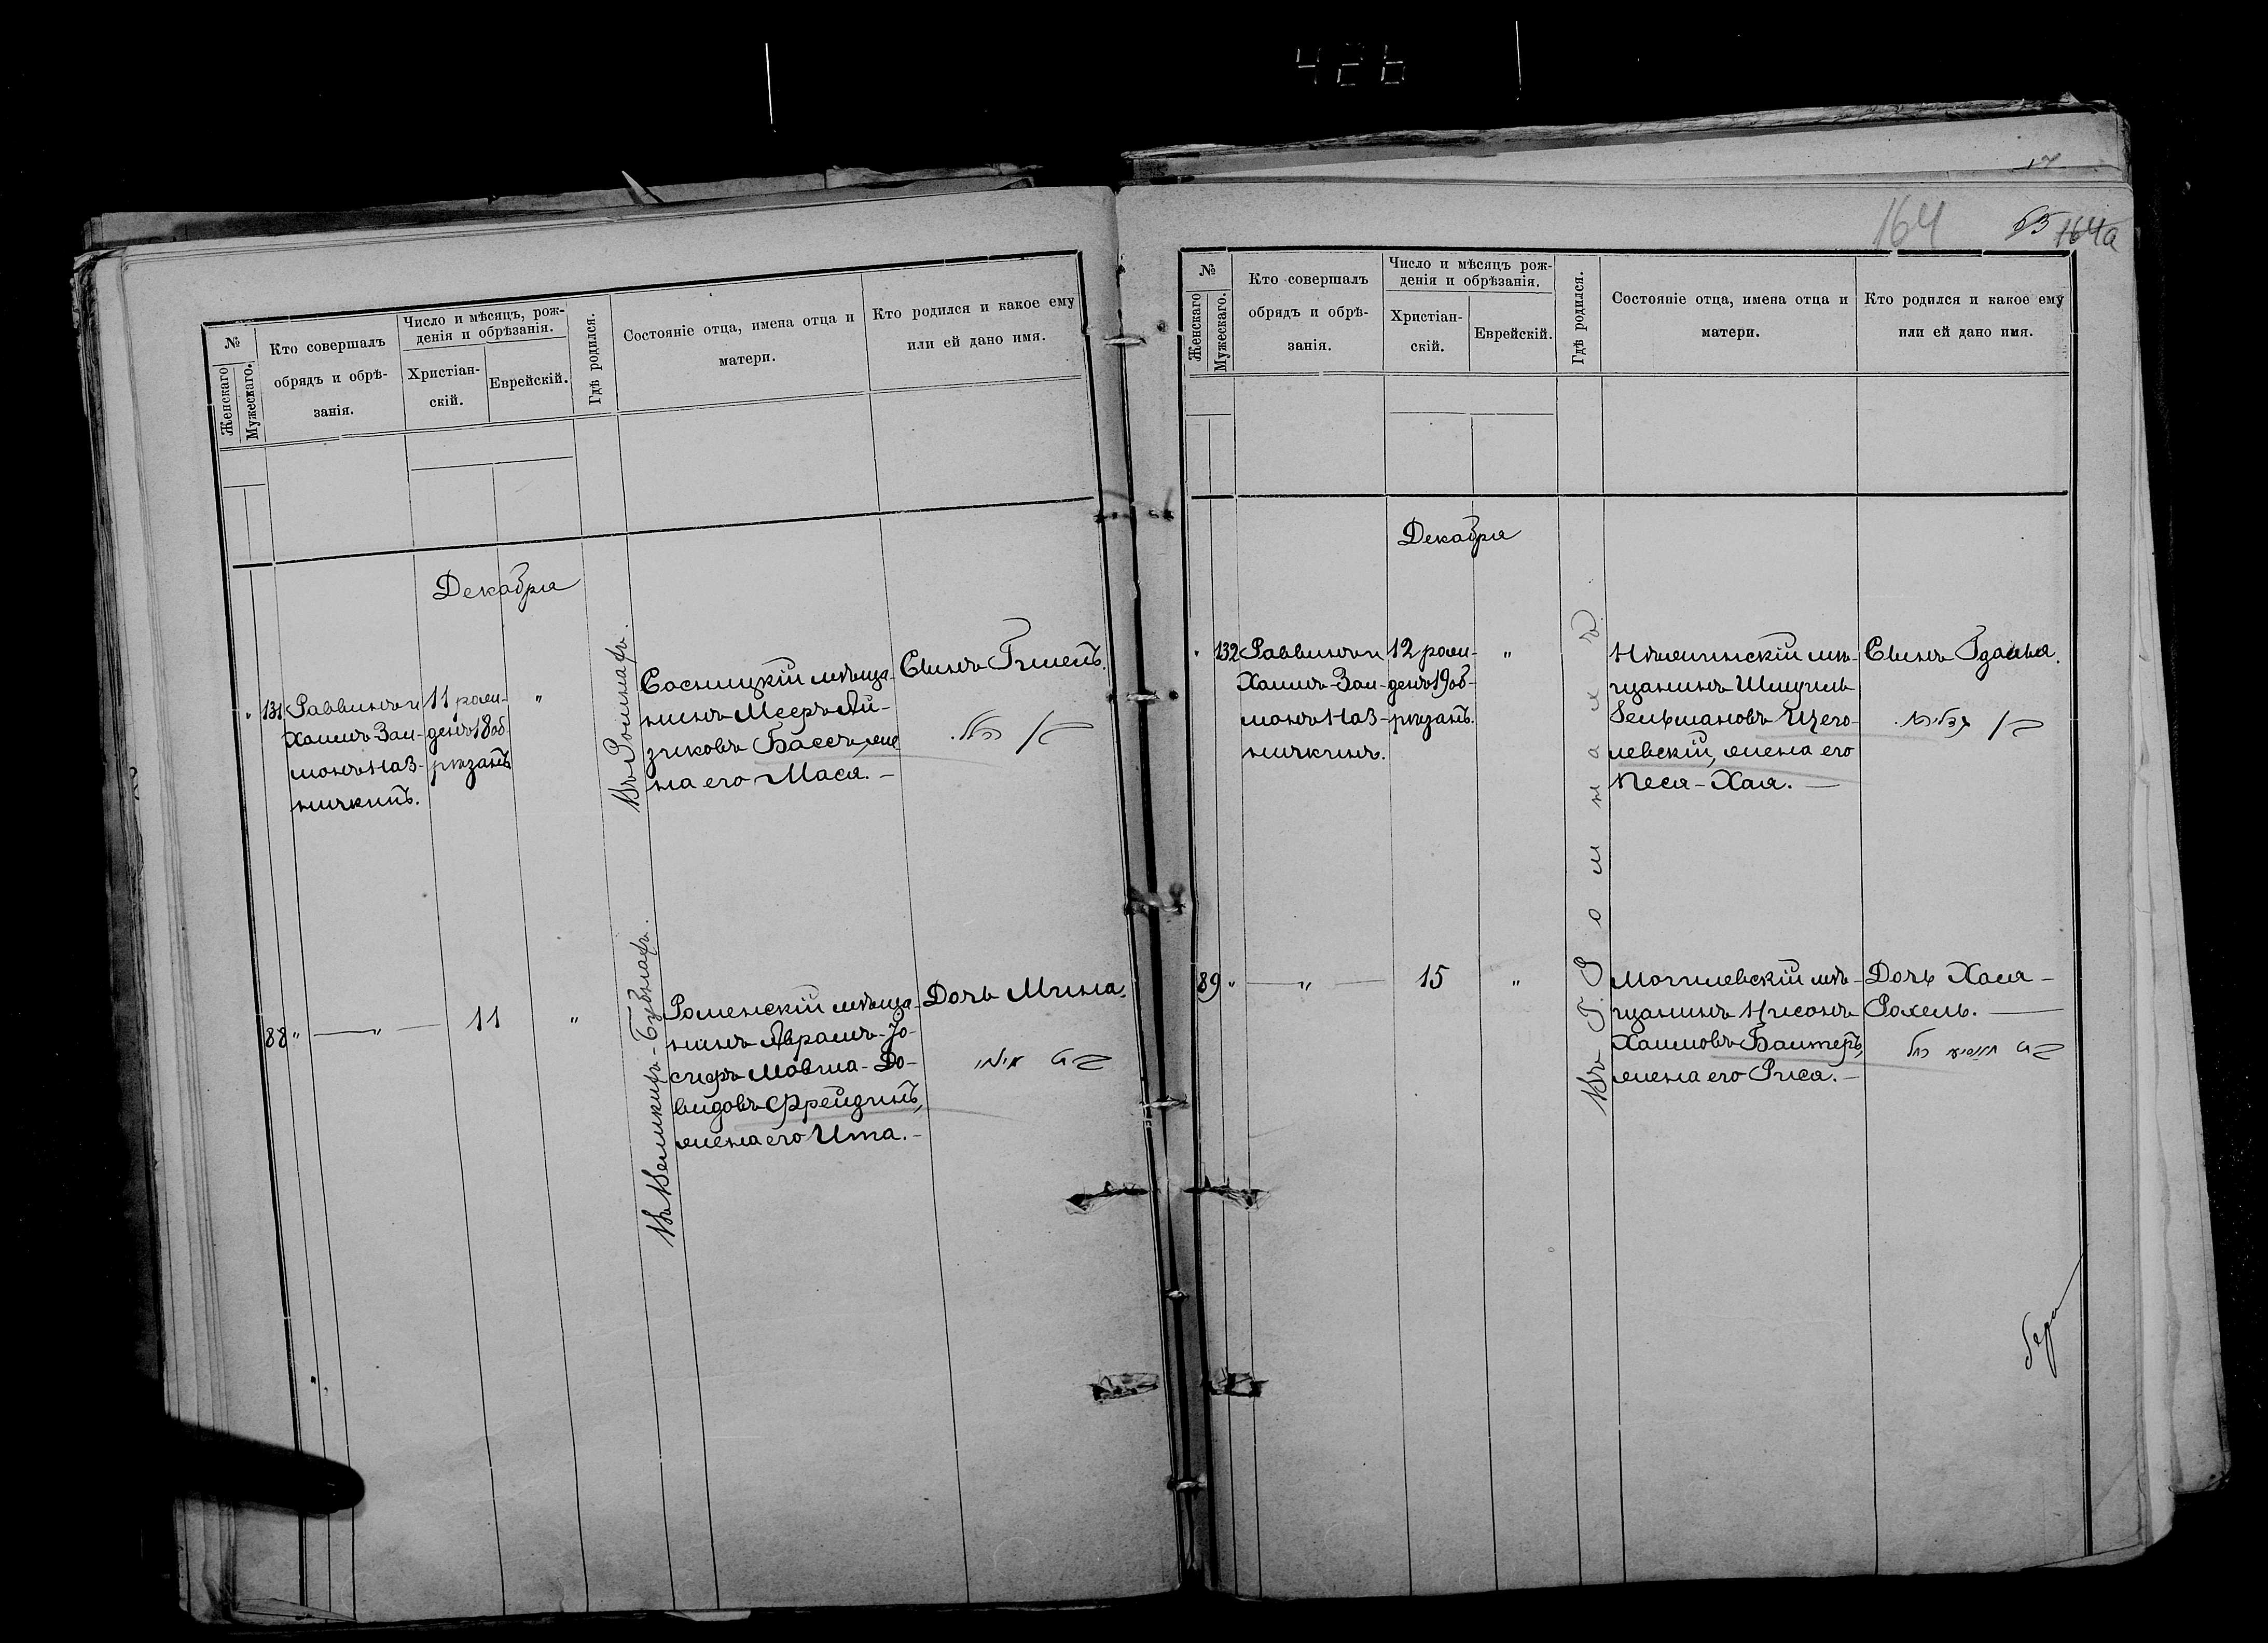 426
№
Женскаго
Мужескаго.
Кто совершалъ
обрядъ и обрѣ-
занія.
Число и мѣсяцъ, рож-
денія и обрѣзанія.
Христіан-
скій.
Еврейскій.
Гдѣ родился.
Состояніе отца, имена отца и
матери.
Кто родился и какое ему
или ей дано имя.
Декабря
" 131
Раввинъ и
Хаимъ Зал-
монъ Наз-
ничкинъ.
11 рож-
денъ 18 об-
рѣзанъ
"
Въ Ромнахъ.
Сосницкій мѣща-
нинъ Мееръ Ай-
зиковъ Бассъ, же-
на его Маса. –
Сынъ Гилель.
בן הלל.
88 "
— " —
11
"
Въ Великихъ-Бубнахъ.
Роменскій мѣща-
нинъ Аврамъ-Іо-
сифъ Мовша-До-
видовъ Фрейдинъ,
жена его Ита. –
Дочь Мина.
בת
164
164а
№
Женскаго
Мужескаго.
Кто совершалъ
обрядъ и обрѣ-
занія.
Число и мѣсяцъ рож-
денія и обрѣзанія.
Христіан-
скій.
Еврейскій.
Гдѣ родился.
Состояніе отца, имена отца и
матери.
Кто родился и какое ему
или ей дано имя.
Декабря
" 132
Раввинъ и
Хаимъ Зал-
монъ Наз-
ничкинъ.
12 рож-
денъ 19 об-
рѣзанъ.
"
Въ Г. Ромнахъ.
Нѣжинскій мѣ-
щанинъ Шмуиль
Зельмановъ Щего-
левскій, жена его
Песя-Хая. —
Сынъ Гдалья.
בן גדליה.
89 "
— " —
15
"
Могилевскій мѣ-
щанинъ Нисонъ
Хаимовъ Баитеръ,
жена его Риса. –
Дочь Хая-
Рохель. —
בת רחל